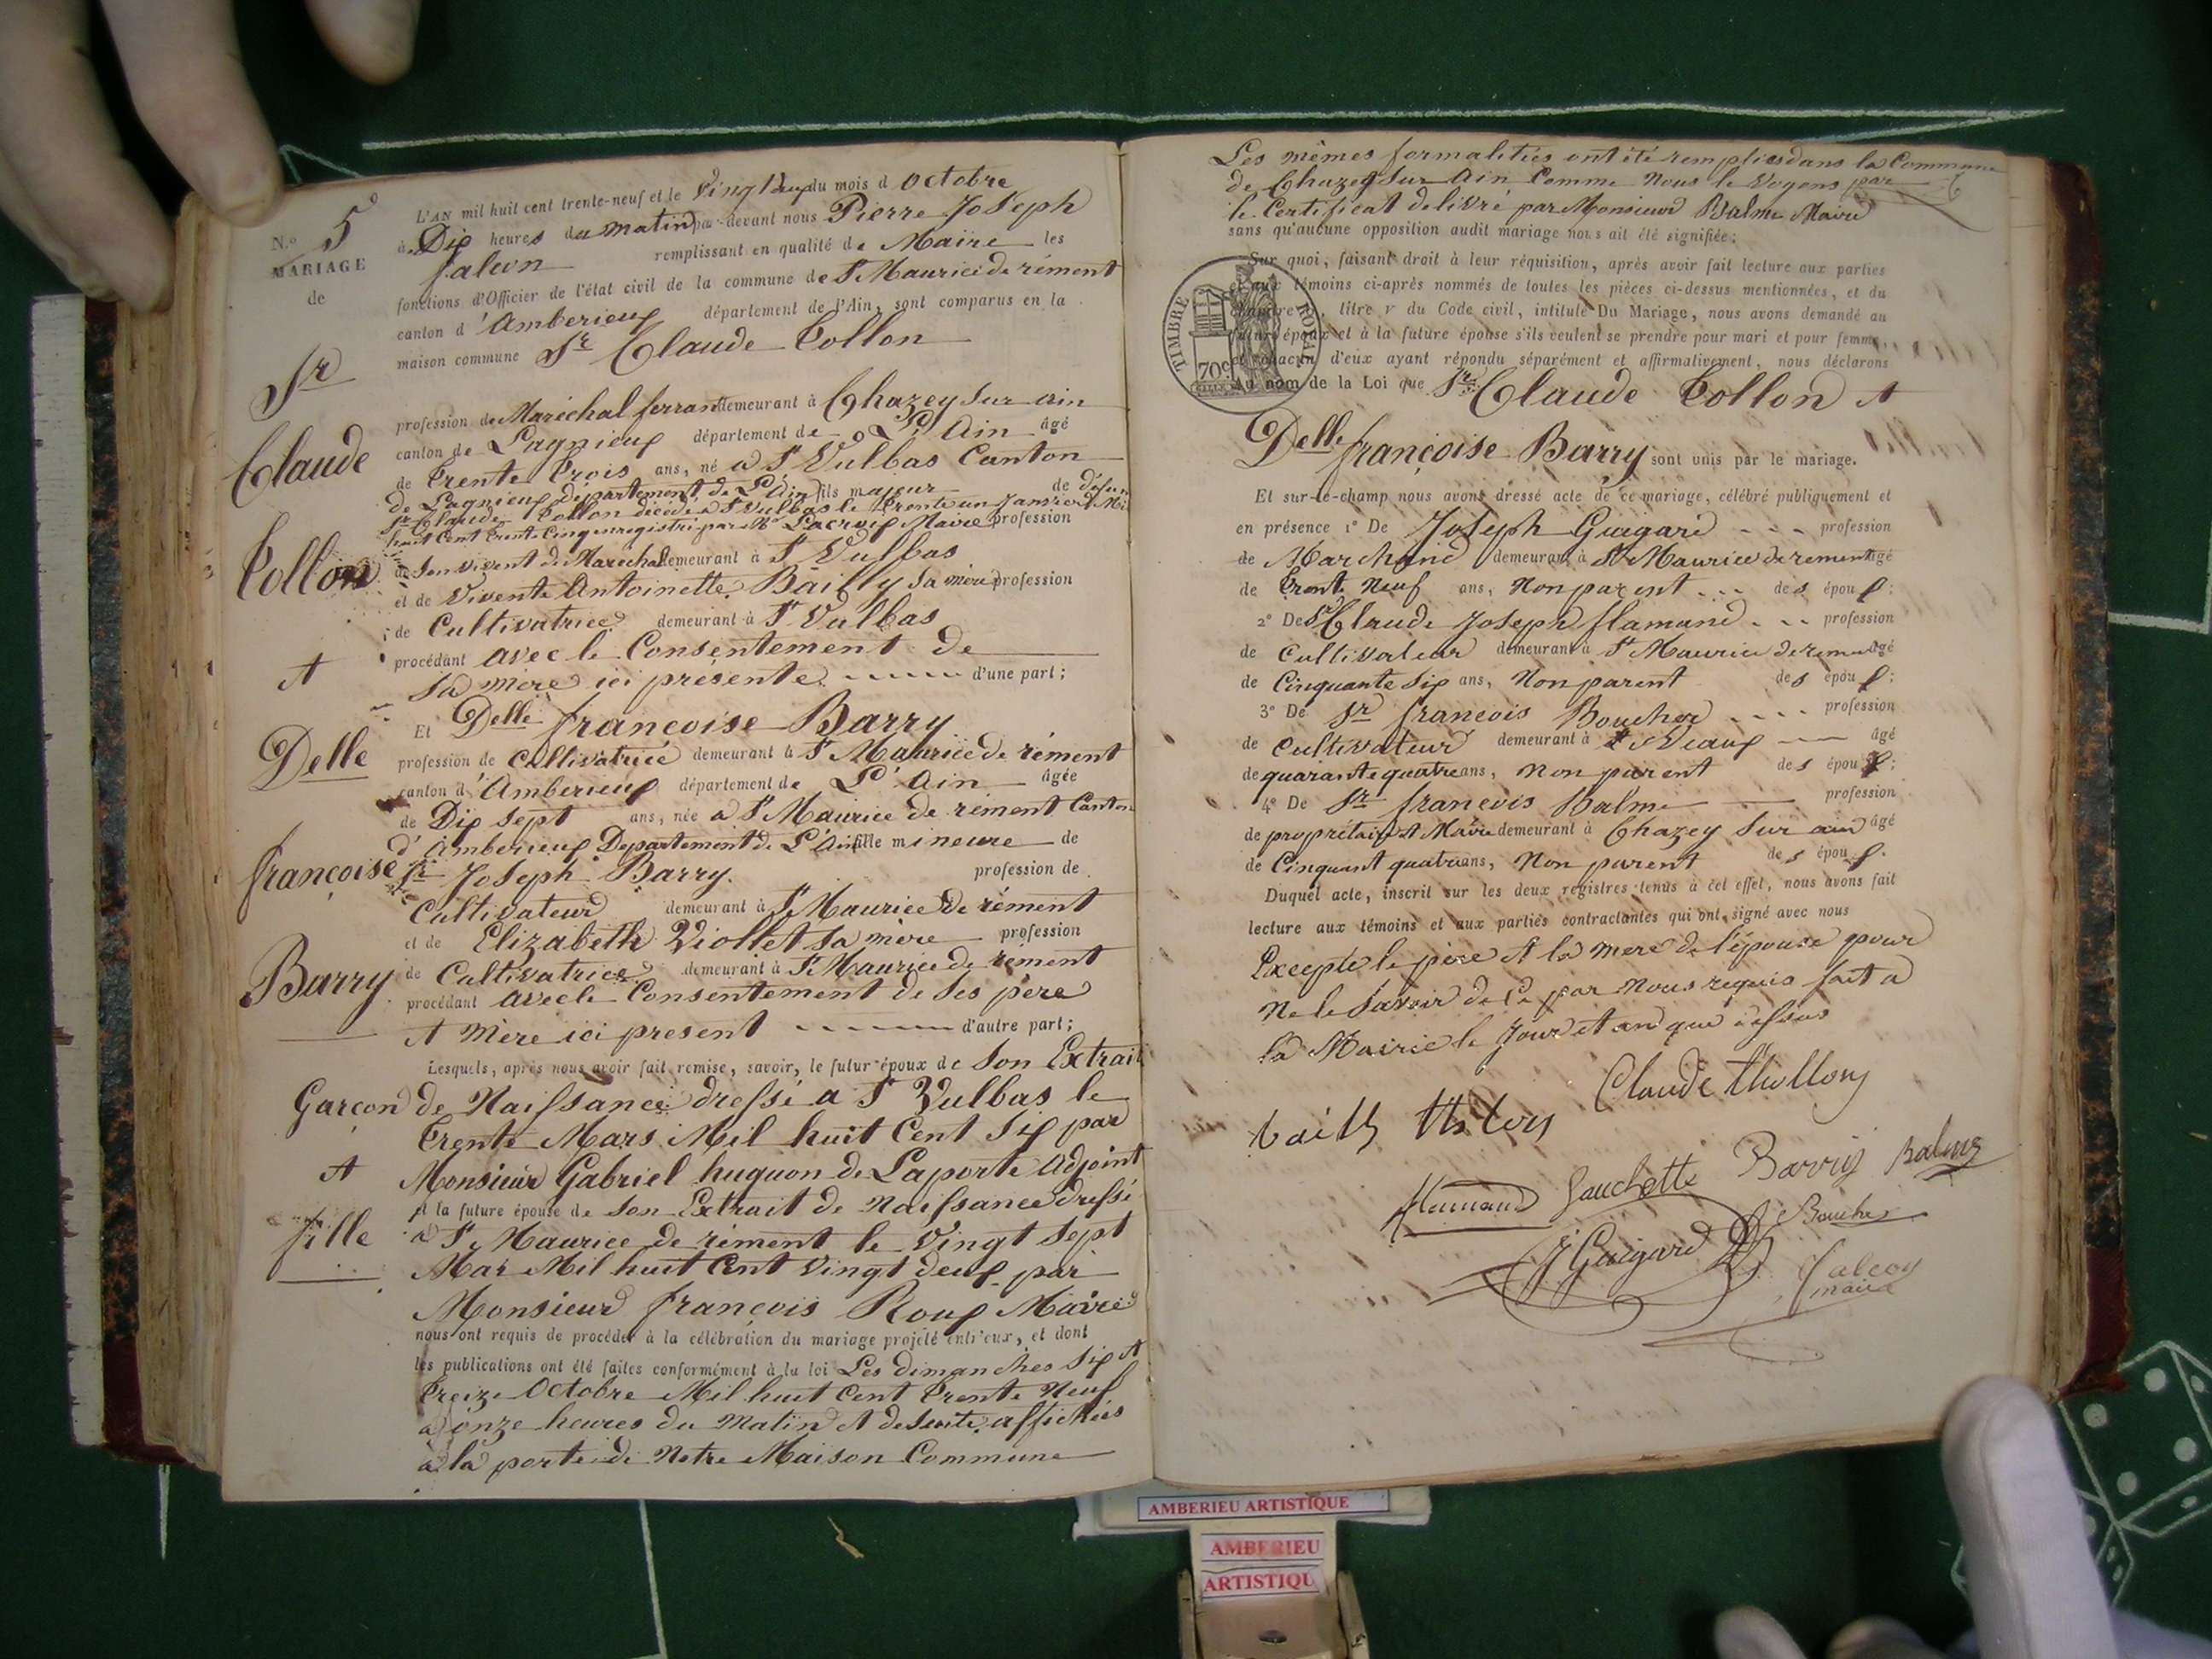 N.o 5
MARIAGE
de
Sr
Claude
Tollon
et
Delle
françoise
Barry
Garçon
et
fille
L'AN mil huit cent trente-neuf et le Vingt deux du mois d octobre
à Dix heures du matin par-devant nous Pierre Joseph
falcon remplissant en qualité de Maire les
fonctions d'Officier de l'état civil de la commune de St Maurice de rément
canton d'Amberieux département de l'Ain, sont comparus en la
maison commune Sr Claude Tollon
profession de Maréchal ferrant demeurant à Chazey Sur ain
canton de Lagnieux département de L'Ain âgé
de Trente Trois ans, né a St Vulbas Canton
de Lagnieux département de L'Ain fils majeur de défunt
Sr Claude Tollon décédé a St Vulbas le Trente un Janvier Mil
huit Cent Trente Cinq enregistré par Mr Lacroix Maire profession
de Son vivent de Maréchal demeurant à St Vulbas
et de Vivente Antoinette Bailly Sa mère profession
de Cultivatrice demeurant à St Vulbas
procédant avec le Consentement de
Sa mère ici présente d'une part;
Et Delle françoise Barry
profession de Cultivatrice demeurant à St Maurice de rément
canton d'Amberieux département de L'Ain âgée
de Dix Sept ans, née a St Maurice de rément Canton
d'Amberieux Departement de L'Ain fille mineure de
Sr Joseph Barry. profession de
Cultivateur demeurant à St Maurice De rément
et de Elizabeth Viollet Sa mère profession
de Cultivatrice demeurant à St Maurice de rément
procédant avec le Consentement de Ses père
et Mère ici present d'autre part;
Lesquels, après nous avoir fait remise, savoir, le futur époux de Son Extrait
de Naissance dressé a St Vulbas le
Trente Mars Mil huit Cent Six par
Monsieur Gabriel huguon de Laporte Adjoint
et la future épouse de Son Extrait de Naissance dressé
a St Maurice de rément le Vingt Sept
Mar Mil huit Cent Vingt deux par
Monsieur françois Roux Maire
nous ont requis de procéder à la célébration du mariage projeté entr'eux, et dont
les publications ont été faites conformément à la loi Les dimanches Six et
Treize Octobre Mil huit Cent Trente Neuf
a onze heures du Matin et de Suite affichées
a la porte de Notre Maison Commune
Les mêmes formalitiés ont été remplies dans la Commune
de Chazey Sur Ain Comme Nous le Voyons par
le Certificat delivré par Monsieur Balme Maire
sans qu'aucune opposition audit mariage nous ait été signifiée;
Sur quoi, faisant droit à leur réquisition, après avoir fait lecture aux parties
et aux témoins ci-après nommés de toutes les pièces ci-dessus mentionnées, et du
chapitre , titre v du Code civil, intitulé Du Mariage, nous avons demandé au
futur époux et à la future épouse s'ils veulent se prendre pour mari et pour femme,
et chacun d'eux ayant répondu séparément et affirmativement, nous déclarons
Au nom de la Loi que Sr Claude Tollon et
TIMBRE ROYAL
70c
Delle françoise Barry sont unis par le mariage.
Et sur-le-champ nous avons dressé acte de ce mariage, célébré publiquement et
en présence 1o De Joseph Guigard profession
de Marchand demeurant à St Maurice de rement âgé
de Trente Neuf ans, Non parent des époux;
2o De Sr Claude Joseph flamand profession
de Cultivateur demeurant à St Maurice de rément âgé
de Cinquante Six ans, Non parent des époux;
3o De Sr françois Boucher profession
de Cultivateur demeurant à âgé
de quarante quatre ans, Non parent des époux;
4o De Sr françois Balme profession
de propriétaire et Maire demeurant à Chazey Sur ain âgé
de Cinquant quatre ans, Non parent des époux.
Duquel acte, inscrit sur les deux registres tenus à cet effet, nous avons fait
lecture aux témoins et aux parties contractantes qui ont signé avec nous
Excepté le père et la mere de l'épouse pour
Ne le Savoir de Ce par Nous requis fait a
la Mairie le Jour et an que dessus
Claude thollon
flamand Gauchette Barry Balme
J Guigard Boucher
falcon
maire
AMBERIEU ARTISTIQUE
AMBERIEU
ARTISTIQU